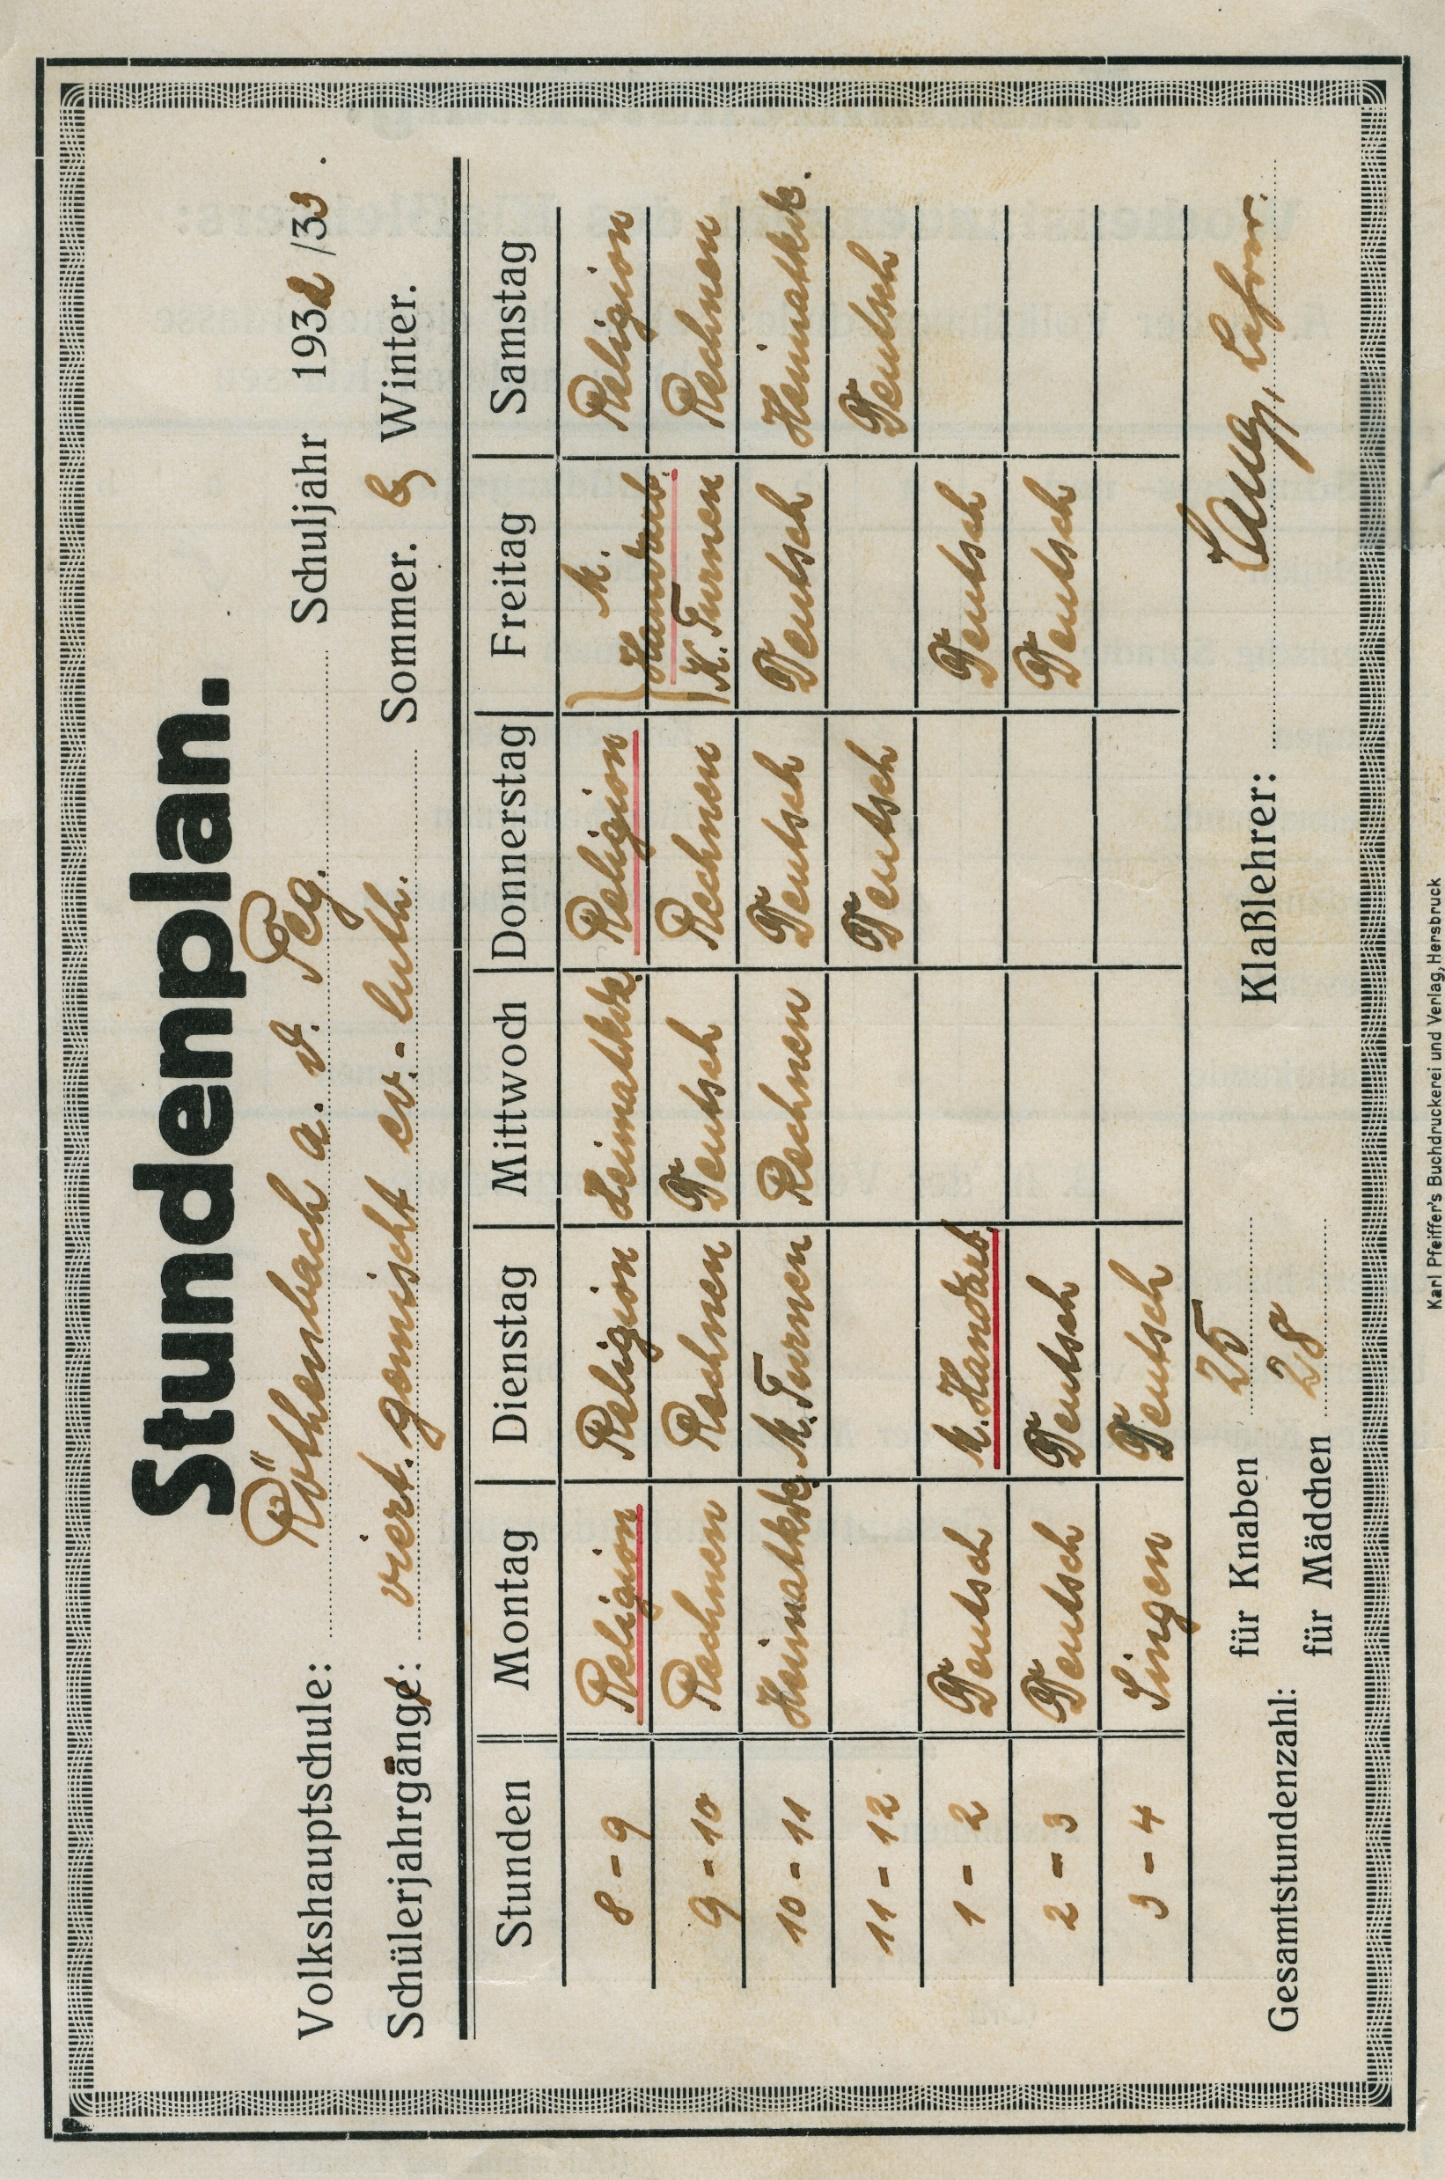 Stundenplan.
Volkshauptschule: Röthenbach a. d. Peg. Schuljahr 1932/33.
Schülerjahrgänge: viert. gemischt ev.-luth. Sommer. & Winter.
Stunden Montag Dienstag Mittwoch Donnerstag Freitag Samstag
8-9 Religion Religion Heimatkde. Religion M. Handarb. Religion
9-10 Rechnen Rechnen Deutsch Rechnen K. Turnen Rechnen
10-11 Heimatkde. M. Turnen Rechnen Deutsch Deutsch Heimatkde.
11-12 Deutsch Deutsch
1-2 Deutsch M. Handarb. Deutsch
2-3 Deutsch Deutsch Deutsch
3-4 Singen Deutsch
Gesamtstundenzahl: für Knaben 25
für Mädchen 28
Klaßlehrer: Lang, Lehrer.
Karl Pfeiffer's Buchdruckerei und Verlag, Hersbruck